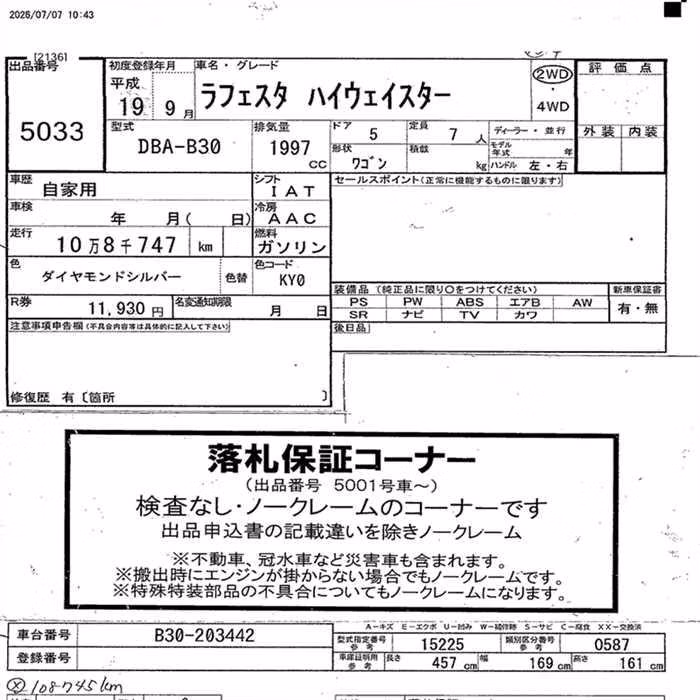 2025/07/07 10:43
[2136]
出品番号
5033
初度登録年月
平成
19 9月
車名・グレード
ラフェスタ ハイウェイスター
2WD
・
4WD
評価点
外装 内装
型式
DBA-B30
排気量
1997
CC
ドア
5
定員
7 人
形状
ワゴン
積載
kg
ディーラー・並行
モデル年式 年
ハンドル 左・右
車歴
自家用
シフト
IAT
セールスポイント(正常に機能するものに限ります)
車検
年 月( 日)
冷房
AAC
走行
10万8千747 km
燃料
ガソリン
色
ダイヤモンドシルバー
色替
色コード
KY0
装備品 (純正品に限り○をつけてください)
新車保証書
PS PW ABS エアB AW
SR ナビ TV カワ
有・無
R券
11,930円
名変通知期限
月 日
後日品
注意事項申告欄(不具合内容等は具体的に記入して下さい)
修復歴 有〔箇所 〕
落札保証コーナー
(出品番号 5001号車~)
検査なし・ノークレームのコーナーです
出品申込書の記載違いを除きノークレーム
※不動車、冠水車など災害車も含まれます。
※搬出時にエンジンが掛からない場合でもノークレームです。
※特殊特装部品の不具合についてもノークレームになります。
A-キズ E-エクボ U-凹み W-補修跡 S-サビ C-腐食 XX-交換済
車台番号
B30-203442
型式指定番号
参考
15225
類別区分番号
参考
0587
登録番号
車庫証明用
参考
長さ
457 cm
幅
169 cm
高さ
161 cm
108745km